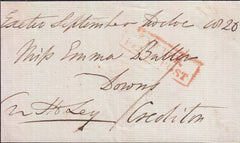 Exeter September twelve 1820
Miss Emma Buller
Downs
Crediton